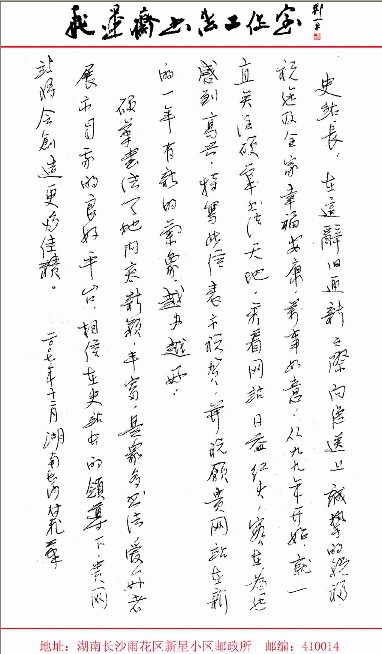 我墨斋书法工作室
史站长：在这辞旧迎新之际向您送上诚挚的祝福
祝您及全家幸福安康，万事如意。从九九年开始就一
直关注硬笔书法天地，来看网站日益红火，实在为您
感到高兴，特写此信表示祝贺，并祝愿贵网站在新
的一年有新的气象，越办越好。
硬笔书法天地内容新颖，丰富，是众多书法爱好者
展示自我的良好平台，相信在史站长的领导下，贵网
站将会创造更好佳绩。
二〇〇七年十二月 湖南长沙
地址：湖南长沙雨花区新星小区邮政所 邮编：410014